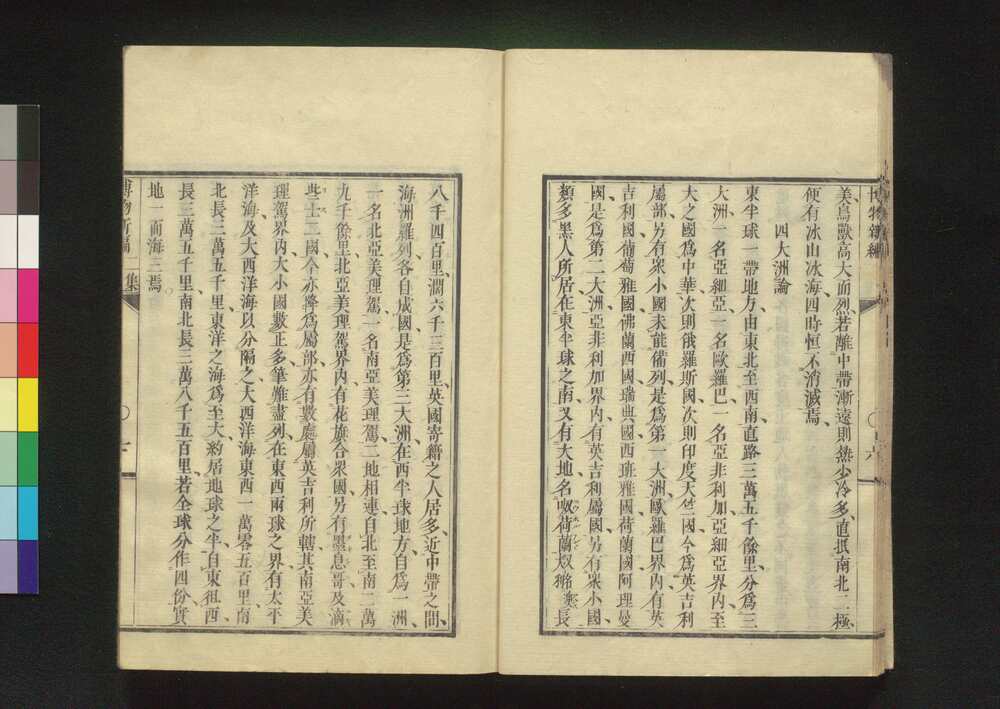 美鳥獸高大而烈若離中帶漸遠則熱少冷多直抵南北二極
便有冰山冰海四時恒不消滅焉
四大洲論
東半球一帶地方由東北至西南直路三萬五千餘里分爲三
大洲一名亞細亞一名歐羅巴一名亞非利加亞細亞界內至
大之國爲中華次則俄羅斯國次則印度天竺國今爲英吉利
屬部另有衆小國未能備列是爲第一大洲歐羅巴界內有英
吉利國葡萄雅國佛蘭西國瑞典國西班雅國荷蘭國阿理曼
國是爲第二大洲亞非利加界內有英吉利屬國另有衆小國
類多黑人所居在東半球之南又有大地名荷蘭長
八千四百里濶六千三百里英國寄籍之人居多近中帶之間
海洲羅列各自成國是爲第三大洲在西半球地方自爲一洲
一名北亞美理駕一名南亞美理駕二地相連自北至南二萬
九千餘里北亞美理駕界內有花旗合衆國另有墨息哥及
些士二國今亦降爲屬部亦有數處屬英吉利所轄其南亞美
理駕界內大小國數正多筆難盡列在東西兩球之界有太平
洋海及大西洋海以分隔之大西洋海東西一萬零五百里南
北長二萬五千里東洋之海爲至大約居地球之半自東徂西
長三萬五千里南北長三萬八千五百里若全球分作四份實
地一而海三焉
博物新編二集